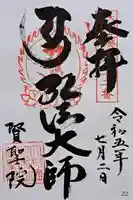 奉拝
令和五年
七月二日
弘法大師
賢聖院
22